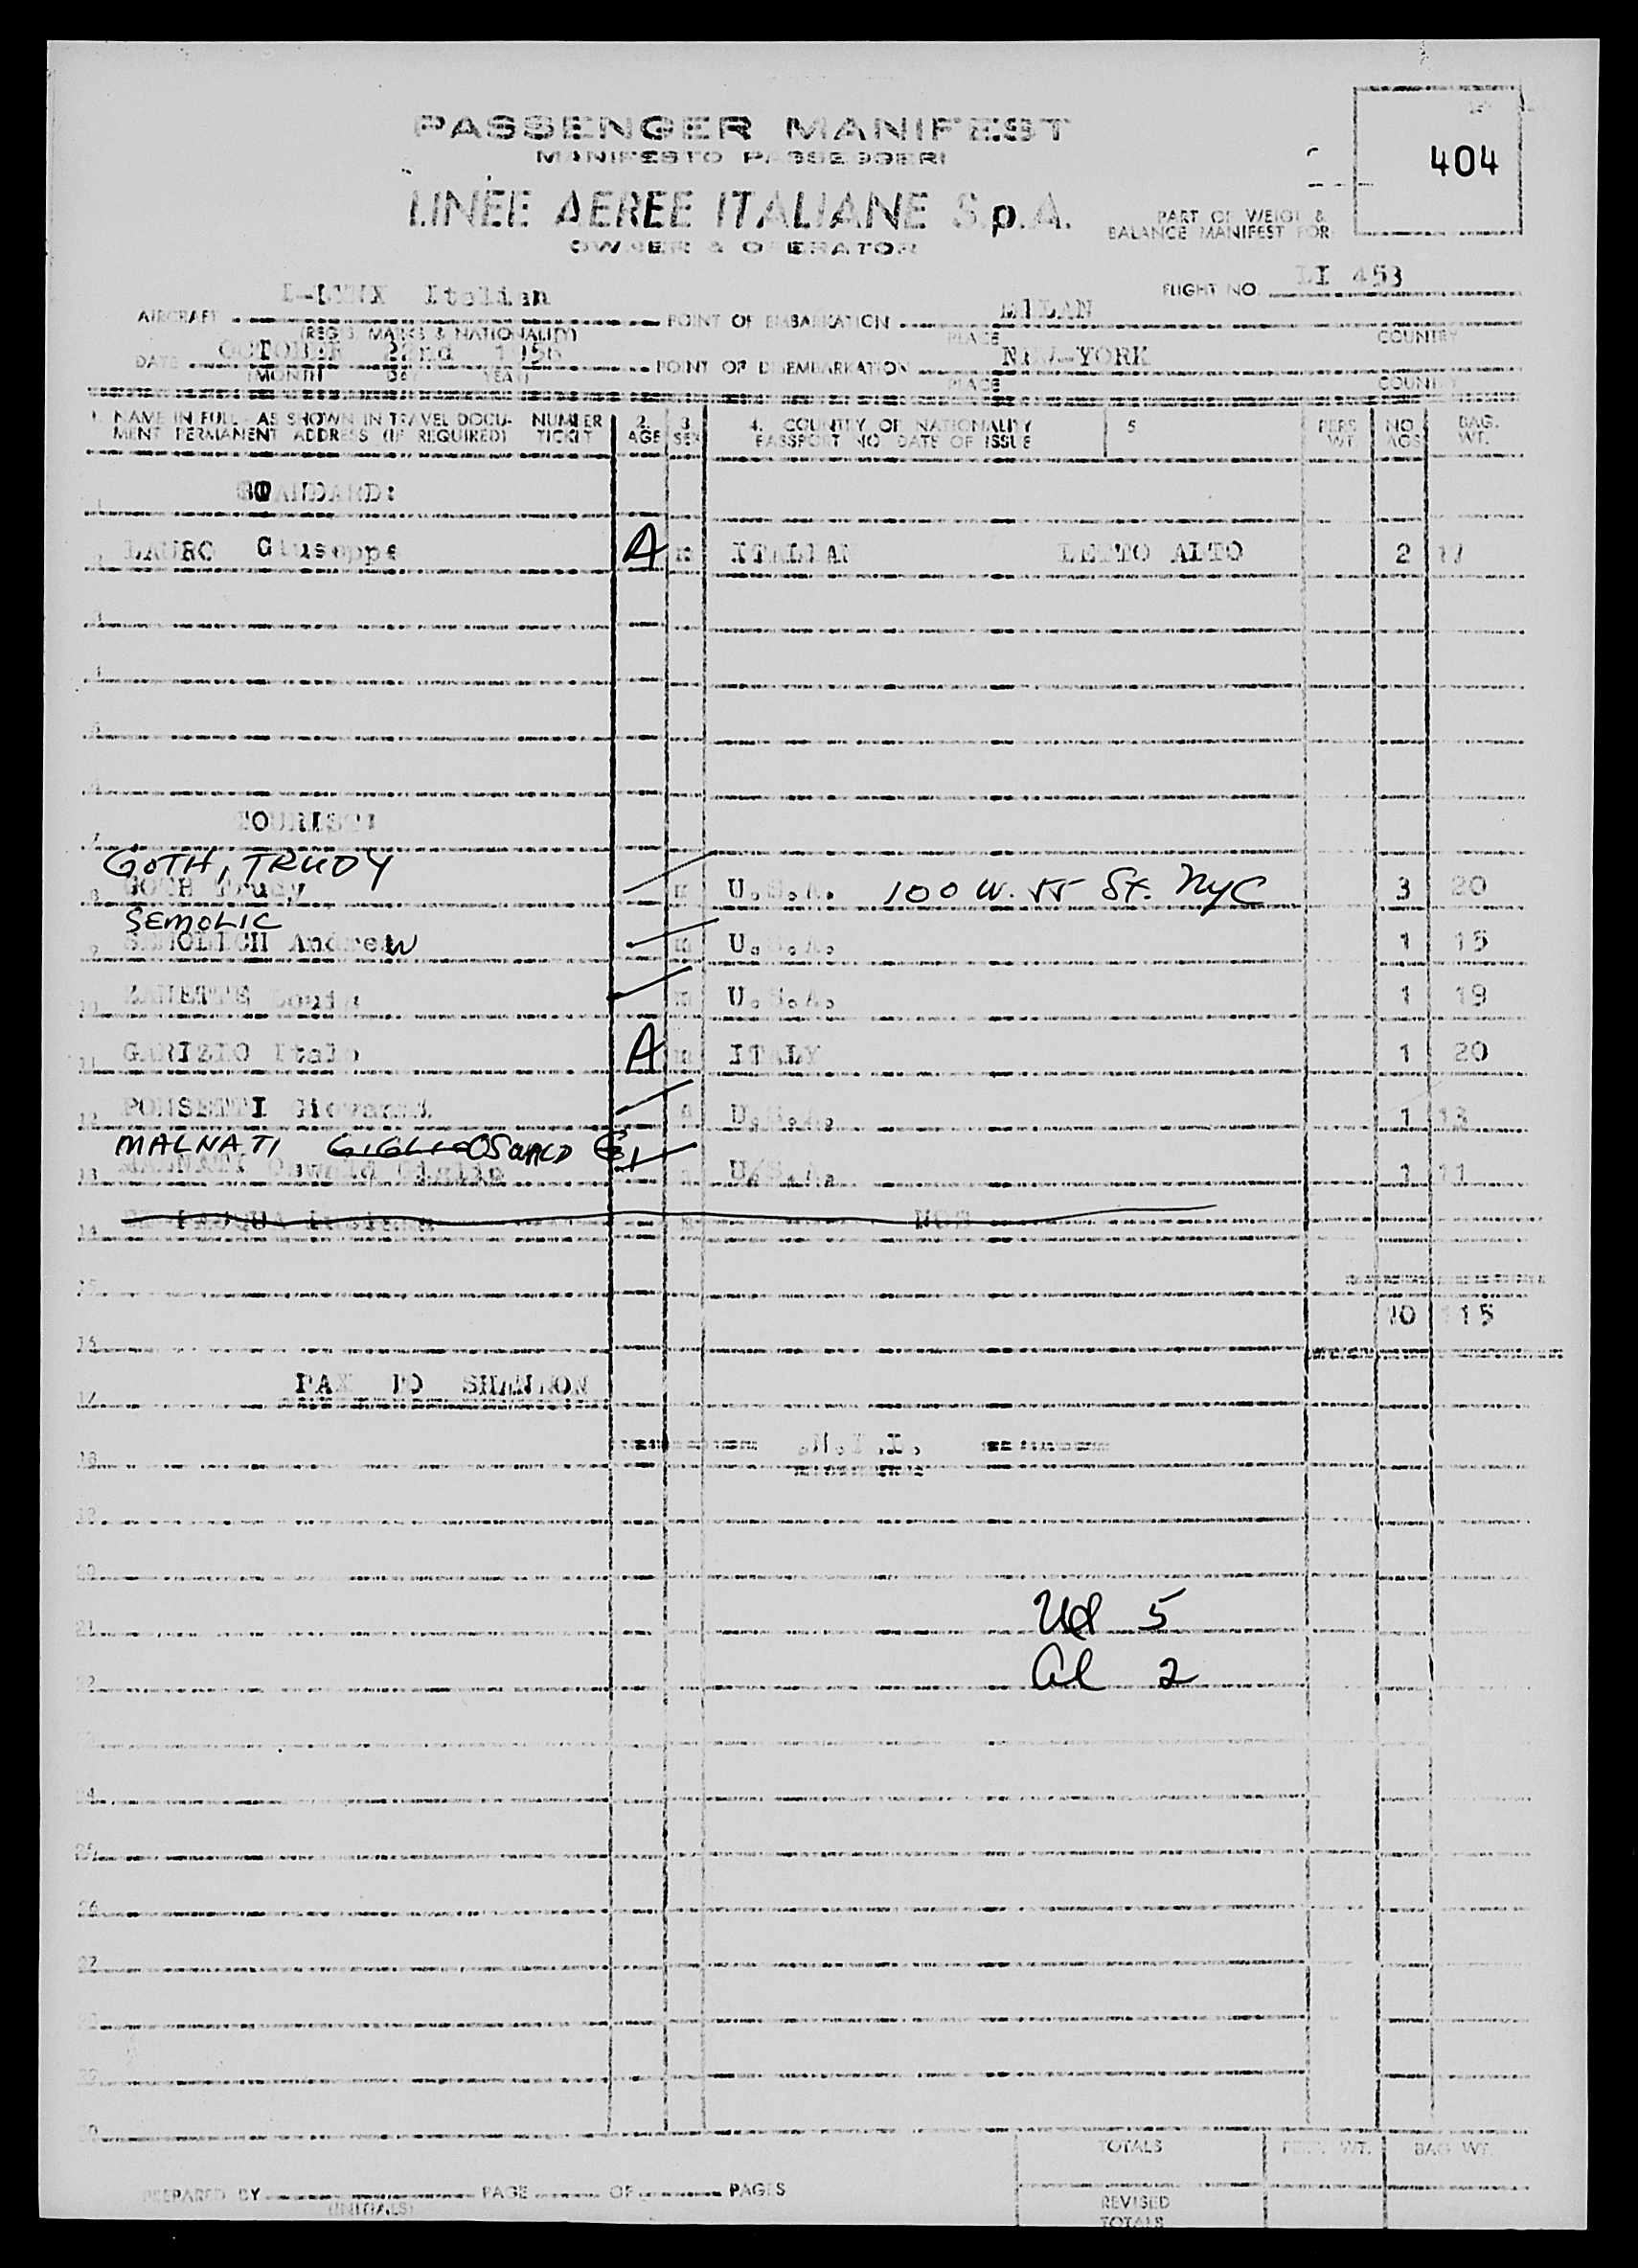 404
PASSENGER MANIFEST
MANIFESTO PASSEGGERI
LINEE AEREE ITALIANE S.p.A.
OWNER & OPERATOR
PART OF WEIGT &
BALANCE MANIFEST FOR
FLIGHT NO. LI 453
AIRCRAFT Italian POINT OF EMBARKATION MILAN
(REGIS MARKS & NATIONALITY) PLACE COUNTRY
DATE OCTOBER 22nd 1956 POINT OF DISEMBARKATION NEW-YORK
(MONTH DAY YEAR) PLACE COUNTRY
1. NAME IN FULL AS SHOWN IN TRAVEL DOCU- NUMBER 2. 3. 4. COUNTRY OF NATIONALITY 5 PERS NO BAG.
MENT PERMANENT ADDRESS (IF REQUIRED) TICKET AGE SEX PASSPORT NO. DATE OF ISSUE WT. WT.
1
2 LAURO Giuseppe A m ITALIAN LETTO ALTO 2 17
3
4
5
6
7 TOURIST:
GOTH, TRUDY
8 GOTH Trudy m U.S.A. 100 W. 55 St. NYC 3 20
SEMOLIC
9 SEMOLICH Andrew m U.S.A. 1 15
10 m U.S.A. 1 19
11 GARIZIO Italo A m ITALY 1 20
12 PONSETTI Giovanni U.S.A. 1 13
MALNATI GIGLIO OSWALD G
13 MALNATI Oswald Giglio U.S.A. 1 11
14
15
10 115
16
17 PAX TO SHANNON
18 .N.I.L.
19
20
21 5
22 al 2
24
25
26
27
TOTALS PERS. WT. BAG WT.
PREPARED BY PAGE OF PAGES
(INITIALS) REVISED
TOTALS